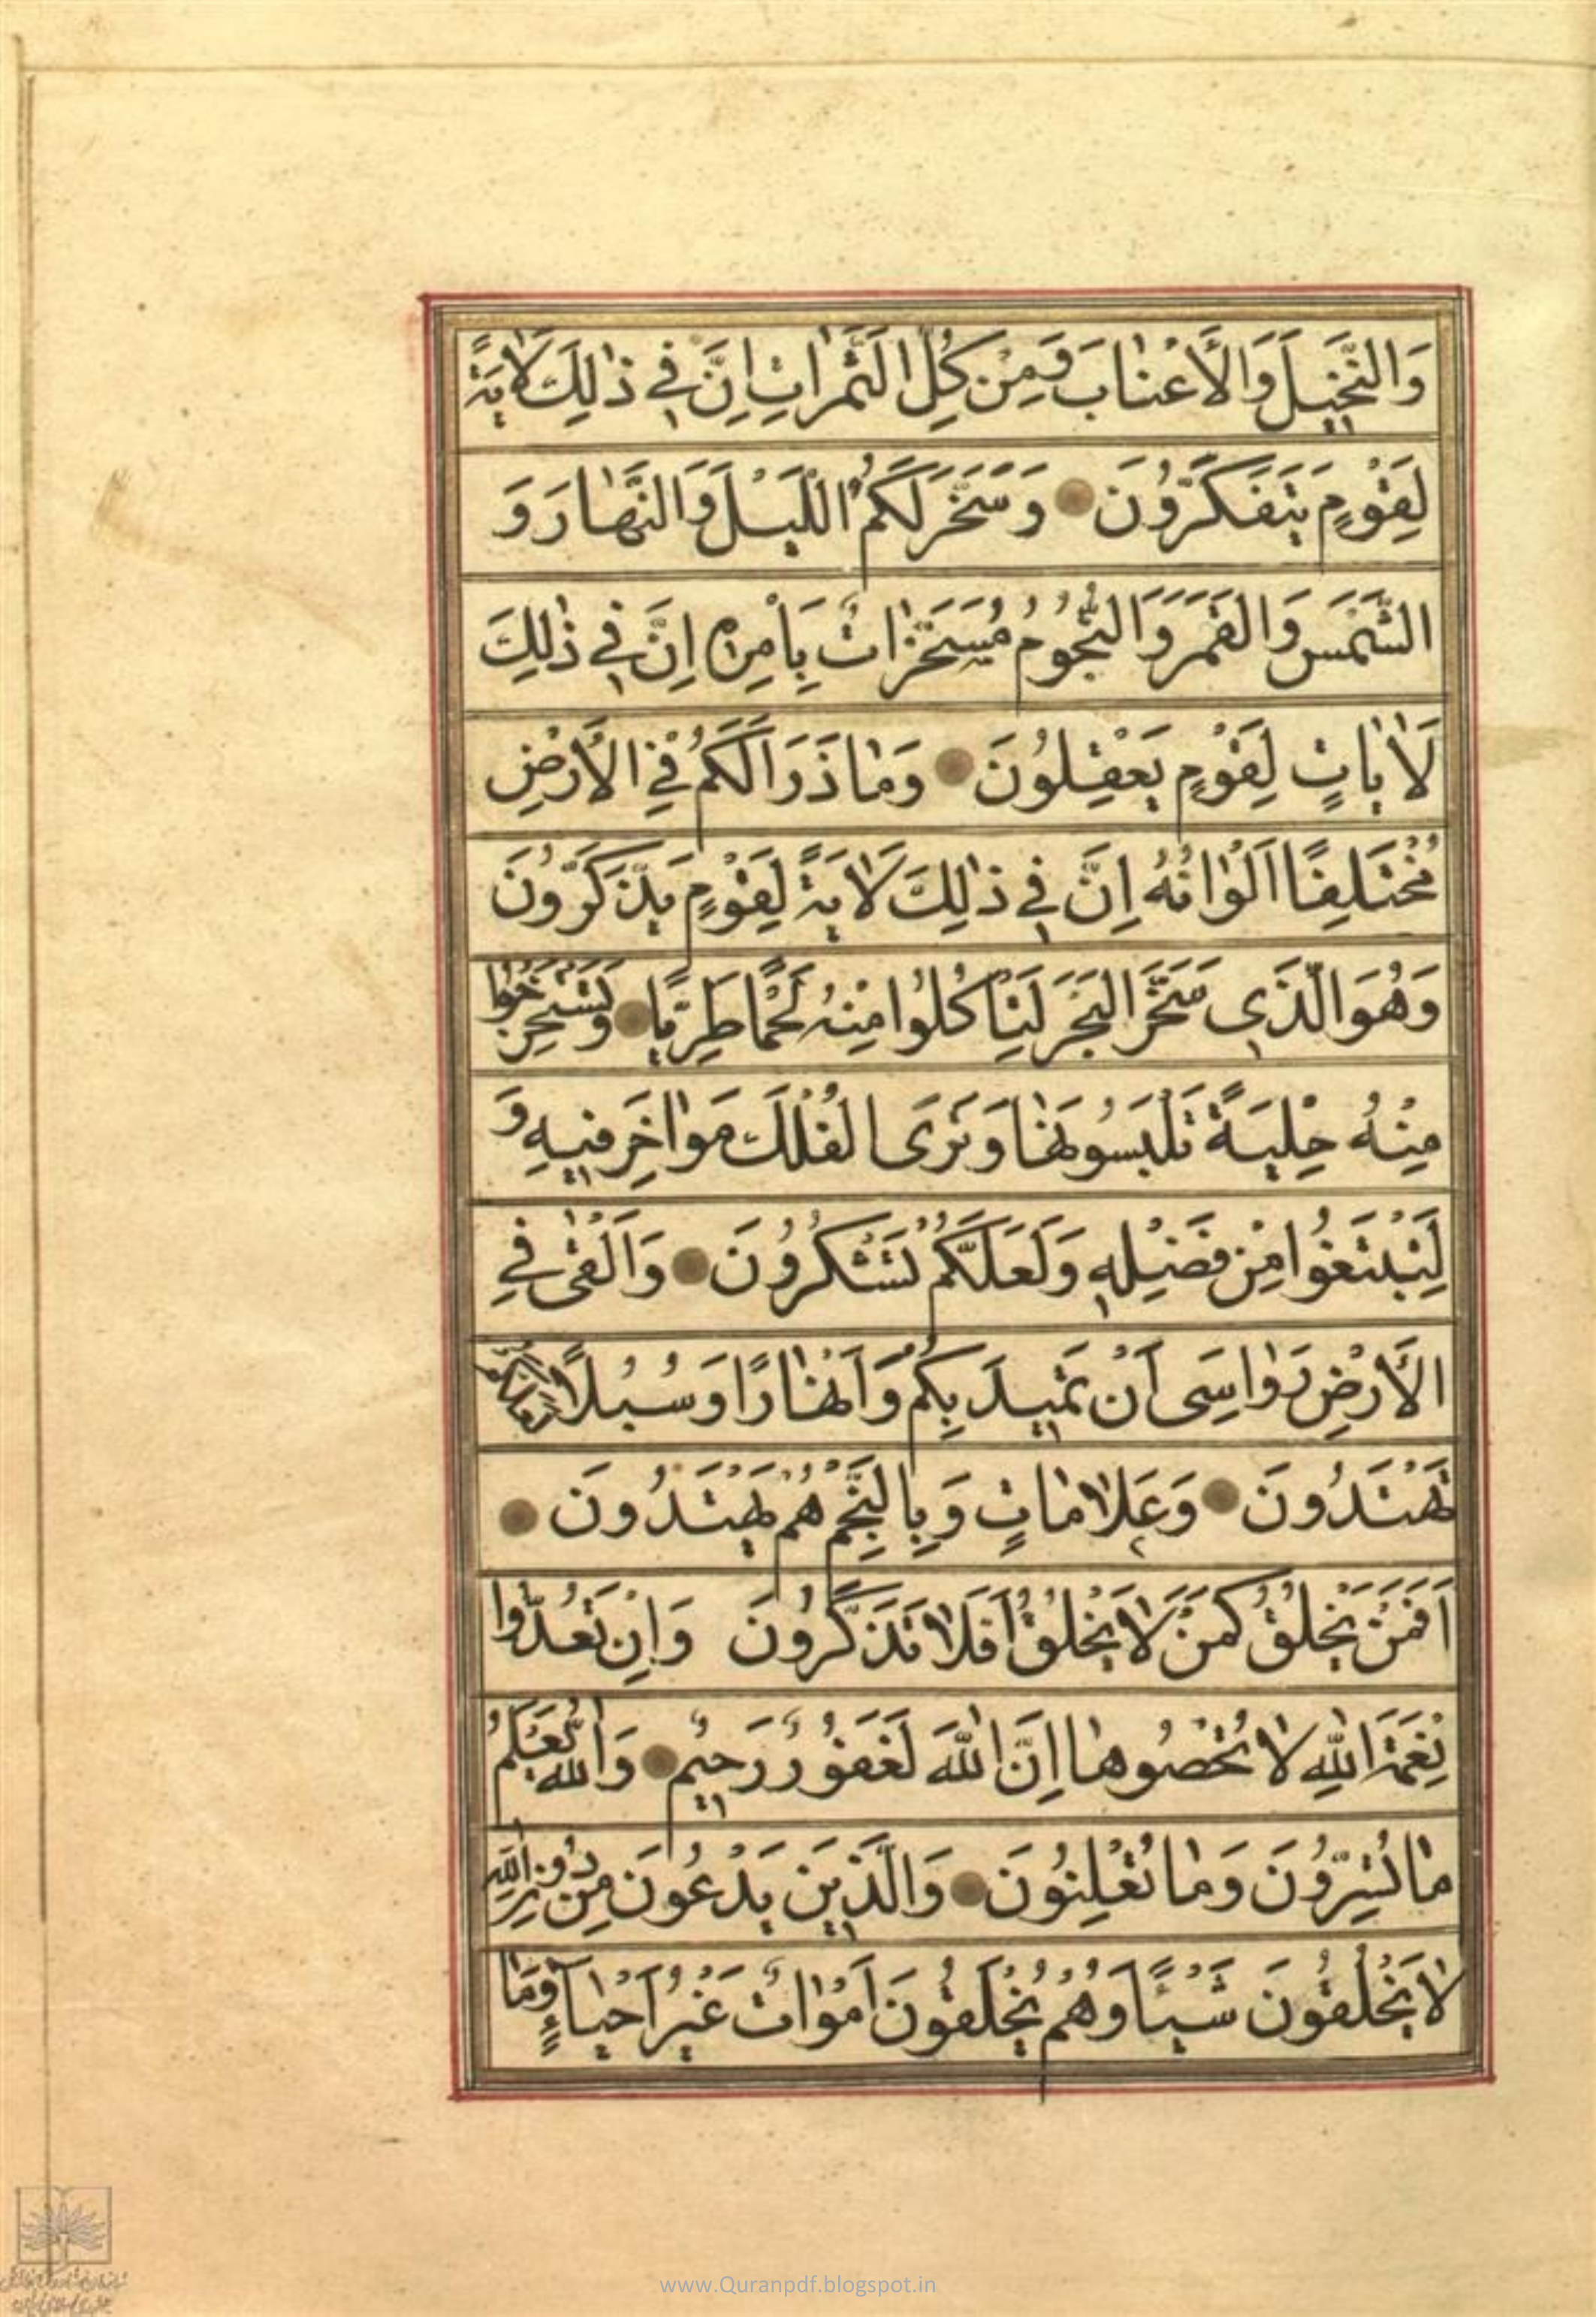 وَالنَّخِيلَ وَالْأَعْنَابَ وَمِنْ كُلِّ الثَّمَرَاتِ اِنَّ فِي ذٰلِكَ لَاٰيَةً
لِقَوْمٍ يَتَفَكَّرُونَ وَسَخَّرَ لَكُمُ اللَّيْلَ وَالنَّهَارَ وَ
الشَّمْسَ وَالْقَمَرَ وَالنُّجُومُ مُسَخَّرَاتٌ بِأَمْرِهِ اِنَّ فِي ذٰلِكَ
لَاٰيَاتٍ لِقَوْمٍ يَعْقِلُونَ وَمَا ذَرَاَ لَكُمْ فِي الْأَرْضِ
مُخْتَلِفًا اَلْوَانُهُ اِنَّ فِي ذٰلِكَ لَاٰيَةً لِقَوْمٍ يَذَّكَّرُونَ
وَهُوَ الَّذِي سَخَّرَ الْبَحْرَ لِتَاْكُلُوا مِنْهُ لَحْمًا طَرِيًّا وَتَسْتَخْرِجُوا
مِنْهُ حِلْيَةً تَلْبَسُونَهَا وَتَرَى الْفُلْكَ مَوَاخِرَ فِيهِ وَ
لِتَبْتَغُوا مِنْ فَضْلِهِ وَلَعَلَّكُمْ تَشْكُرُونَ وَاَلْقٰى فِي
الْأَرْضِ رَوَاسِيَ اَنْ تَمِيدَ بِكُمْ وَاَنْهَارًا وَسُبُلًا لَعَلَّكُمْ
تَهْتَدُونَ وَعَلَامَاتٍ وَبِالنَّجْمِ هُمْ يَهْتَدُونَ
اَفَمَنْ يَخْلُقُ كَمَنْ لَا يَخْلُقُ اَفَلَا تَذَكَّرُونَ وَاِنْ تَعُدُّوا
نِعْمَةَ اللّٰهِ لَا تُحْصُوهَا اِنَّ اللّٰهَ لَغَفُورٌ رَحِيمٌ وَاللّٰهُ يَعْلَمُ
مَا تُسِرُّونَ وَمَا تُعْلِنُونَ وَالَّذِينَ يَدْعُونَ مِنْ دُونِ اللّٰهِ
لَا يَخْلُقُونَ شَيْئًا وَهُمْ يُخْلَقُونَ اَمْوَاتٌ غَيْرُ اَحْيَاءٍ وَمَا
www.Quranpdf.blogspot.in